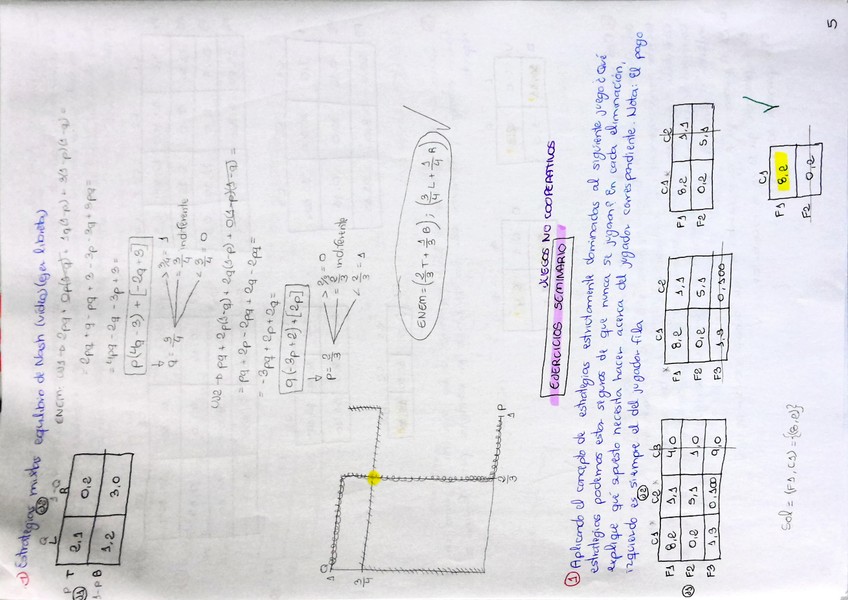 ① Estrategias mixtas equilibrio de Nash (video)(ejer libreta)
q 1-q
J2
L R
p T 2,1 0,2
J1
1-p B 1,2 3,0
ENEM: UJ1→ 2pq + 0p(1-q) + 1q(1-p) + 3(1-p)(1-q) =
= 2pq + q - pq + 3 - 3p - 3q + 3pq =
= 4pq - 2q - 3p + 3 =
p(4q-3) + [-2q+3]
↓
q = 3/4
> 3/4 = 1
= 3/4 indiferente
< 3/4 = 0
UJ2→ pq + 2p(1-q) + 2q(1-p) + 0(1-p)(1-q) =
= pq + 2p - 2pq + 2q - 2pq =
= -3pq + 2p + 2q =
q(-3p+2) + [2p]
↓
p = 2/3
> 2/3 = 0
= 2/3 indiferente
< 2/3 = 1
Q
1
3/4
2/3
1
P
ENEM = (2/3 T + 1/3 B) ; (3/4 L + 1/4 R)
JUEGOS NO COOPERATIVOS
EJERCICIOS SEMINARIO
① Aplicando el concepto de estrategias estrictamente dominadas al siguiente juego ¿Qué
estrategias podemos estar seguros de que nunca se jueguen? En cada eliminación,
explique qué supuesto necesita hacer acerca del jugador correspondiente. Nota: El pago
izquierdo es siempre el del jugador fila
J2
C1 C2 C3
F1 8,2 1,1 4,0
J1 F2 0,2 5,1 1,0
F3 1,3 0,100 9,0
C1 C2
F1 8,2 1,1
F2 0,2 5,1
F3 1,3 0,100
C1 C2
F1 8,2 1,1
F2 0,2 5,1
C1
F1 8,2
F2 0,2
Sol = (F1, C1) = {8,2}
5